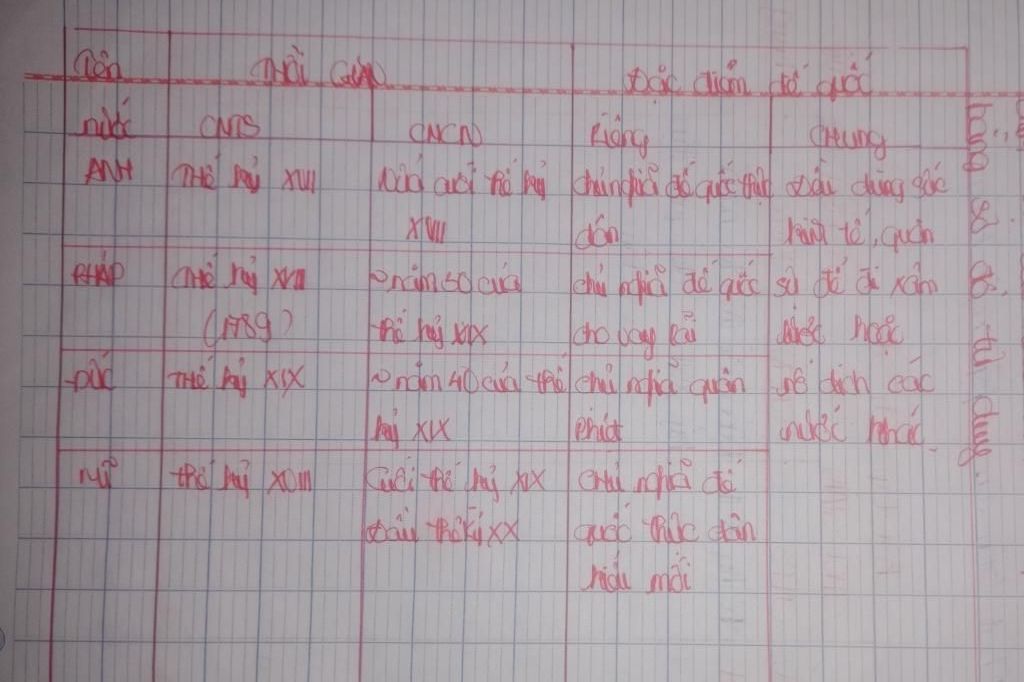 Tên Thời Gian Đặc điểm đế quốc
nước CMTS CMCN Riêng Chung
ANH Thế kỷ XVII Nửa cuối thế kỷ chủ nghĩa đế quốc thực Đều dùng sức
XVIII dân kinh tế, quân
PHÁP Thế kỷ XVIII năm 50 của chủ nghĩa đế quốc sự để đi xâm
(1789) thế kỷ XIX cho vay lãi lược hoặc
Đức Thế kỷ XIX năm 40 của thế chủ nghĩa quân nô dịch các
kỷ XIX phiệt nước khác.
Mĩ thế kỷ XVIII Cuối thế kỷ XIX Chủ nghĩa đế
Đầu thế kỷ XX quốc thực dân
kiểu mới